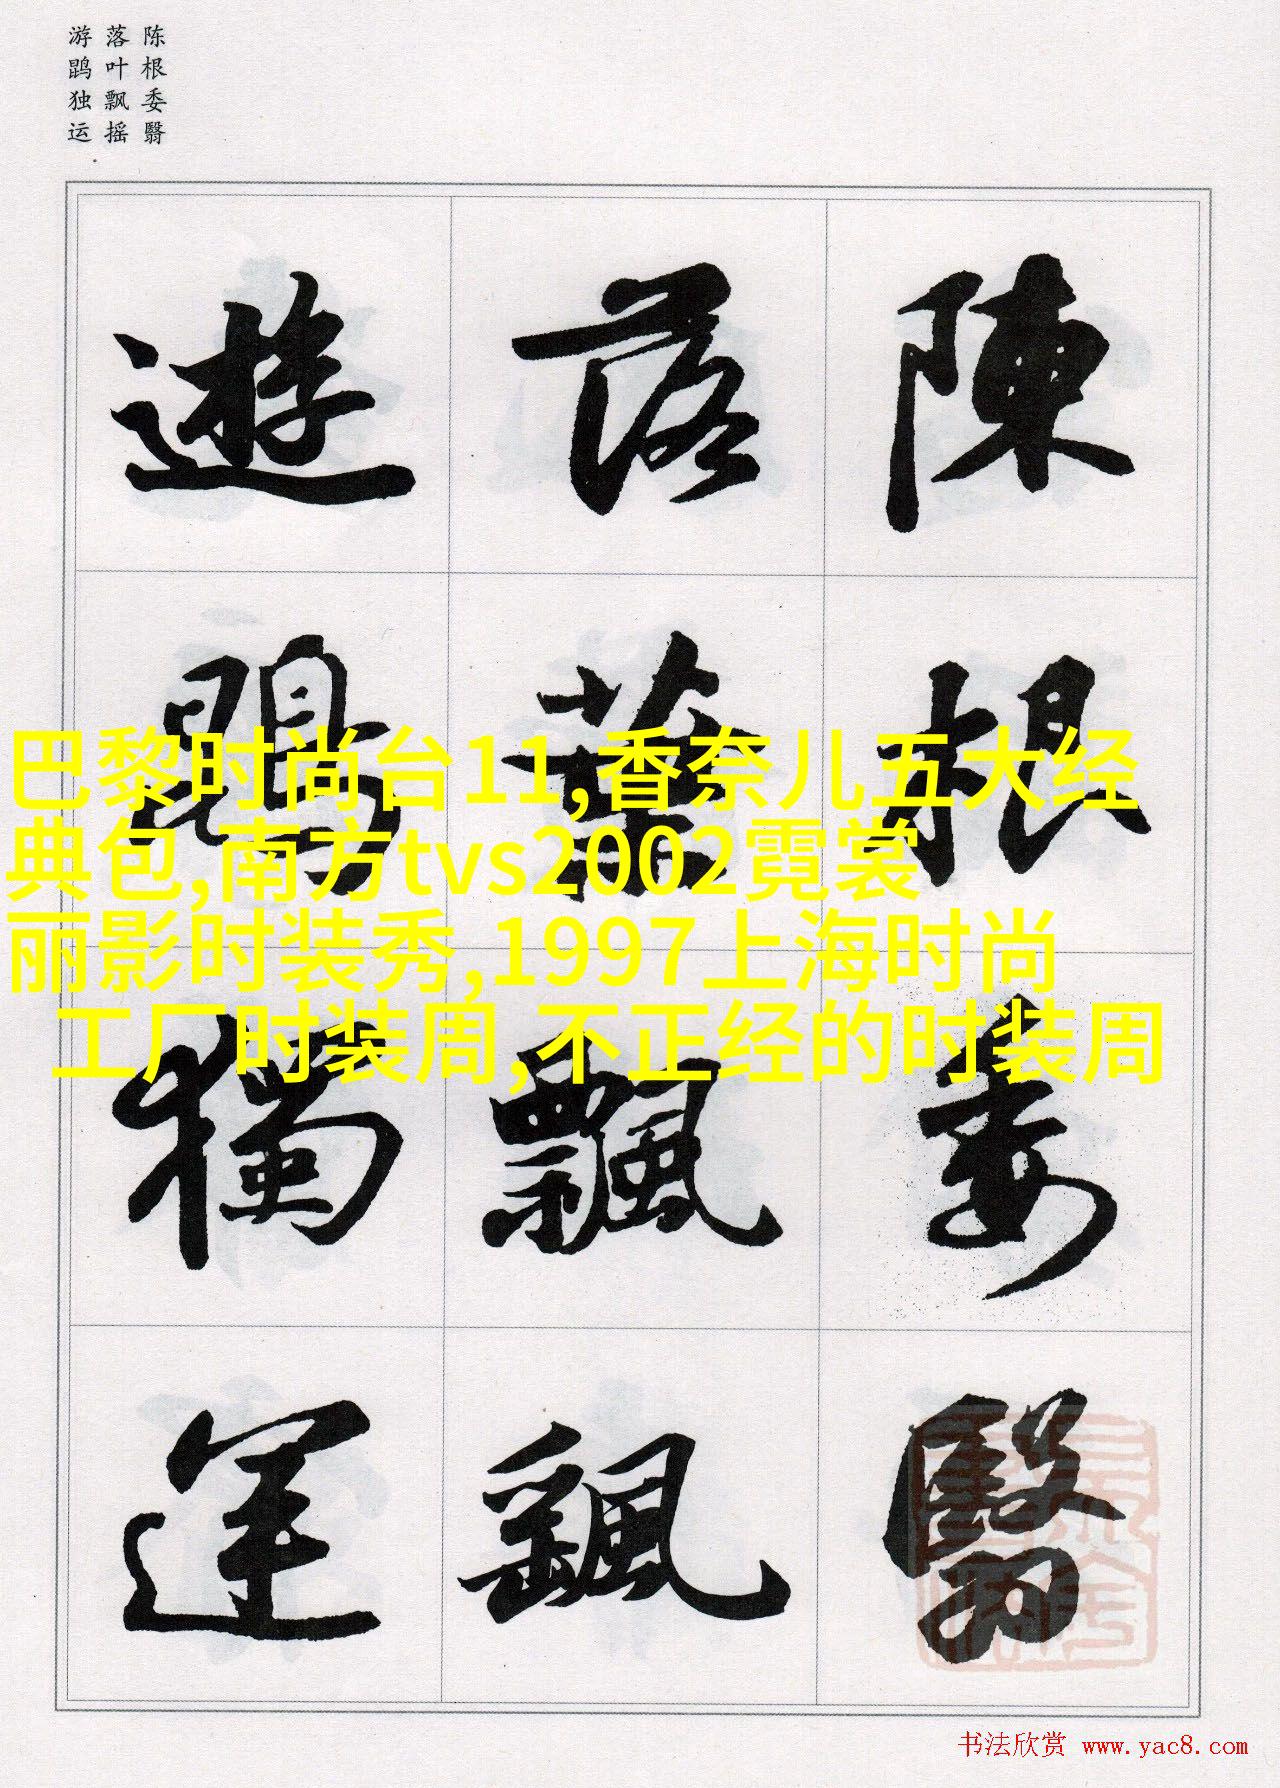 陈根委翳
落叶飘摇
游鹍独运
陳根委翳
落葉飄颻
遊鵾獨運
巴黎时尚台11,香奈儿五大经
典包,南方tvs2002霓裳
丽影时装秀,1997上海时尚
工厂时装周,不正经的时装周
书法欣赏 www.yac8.com